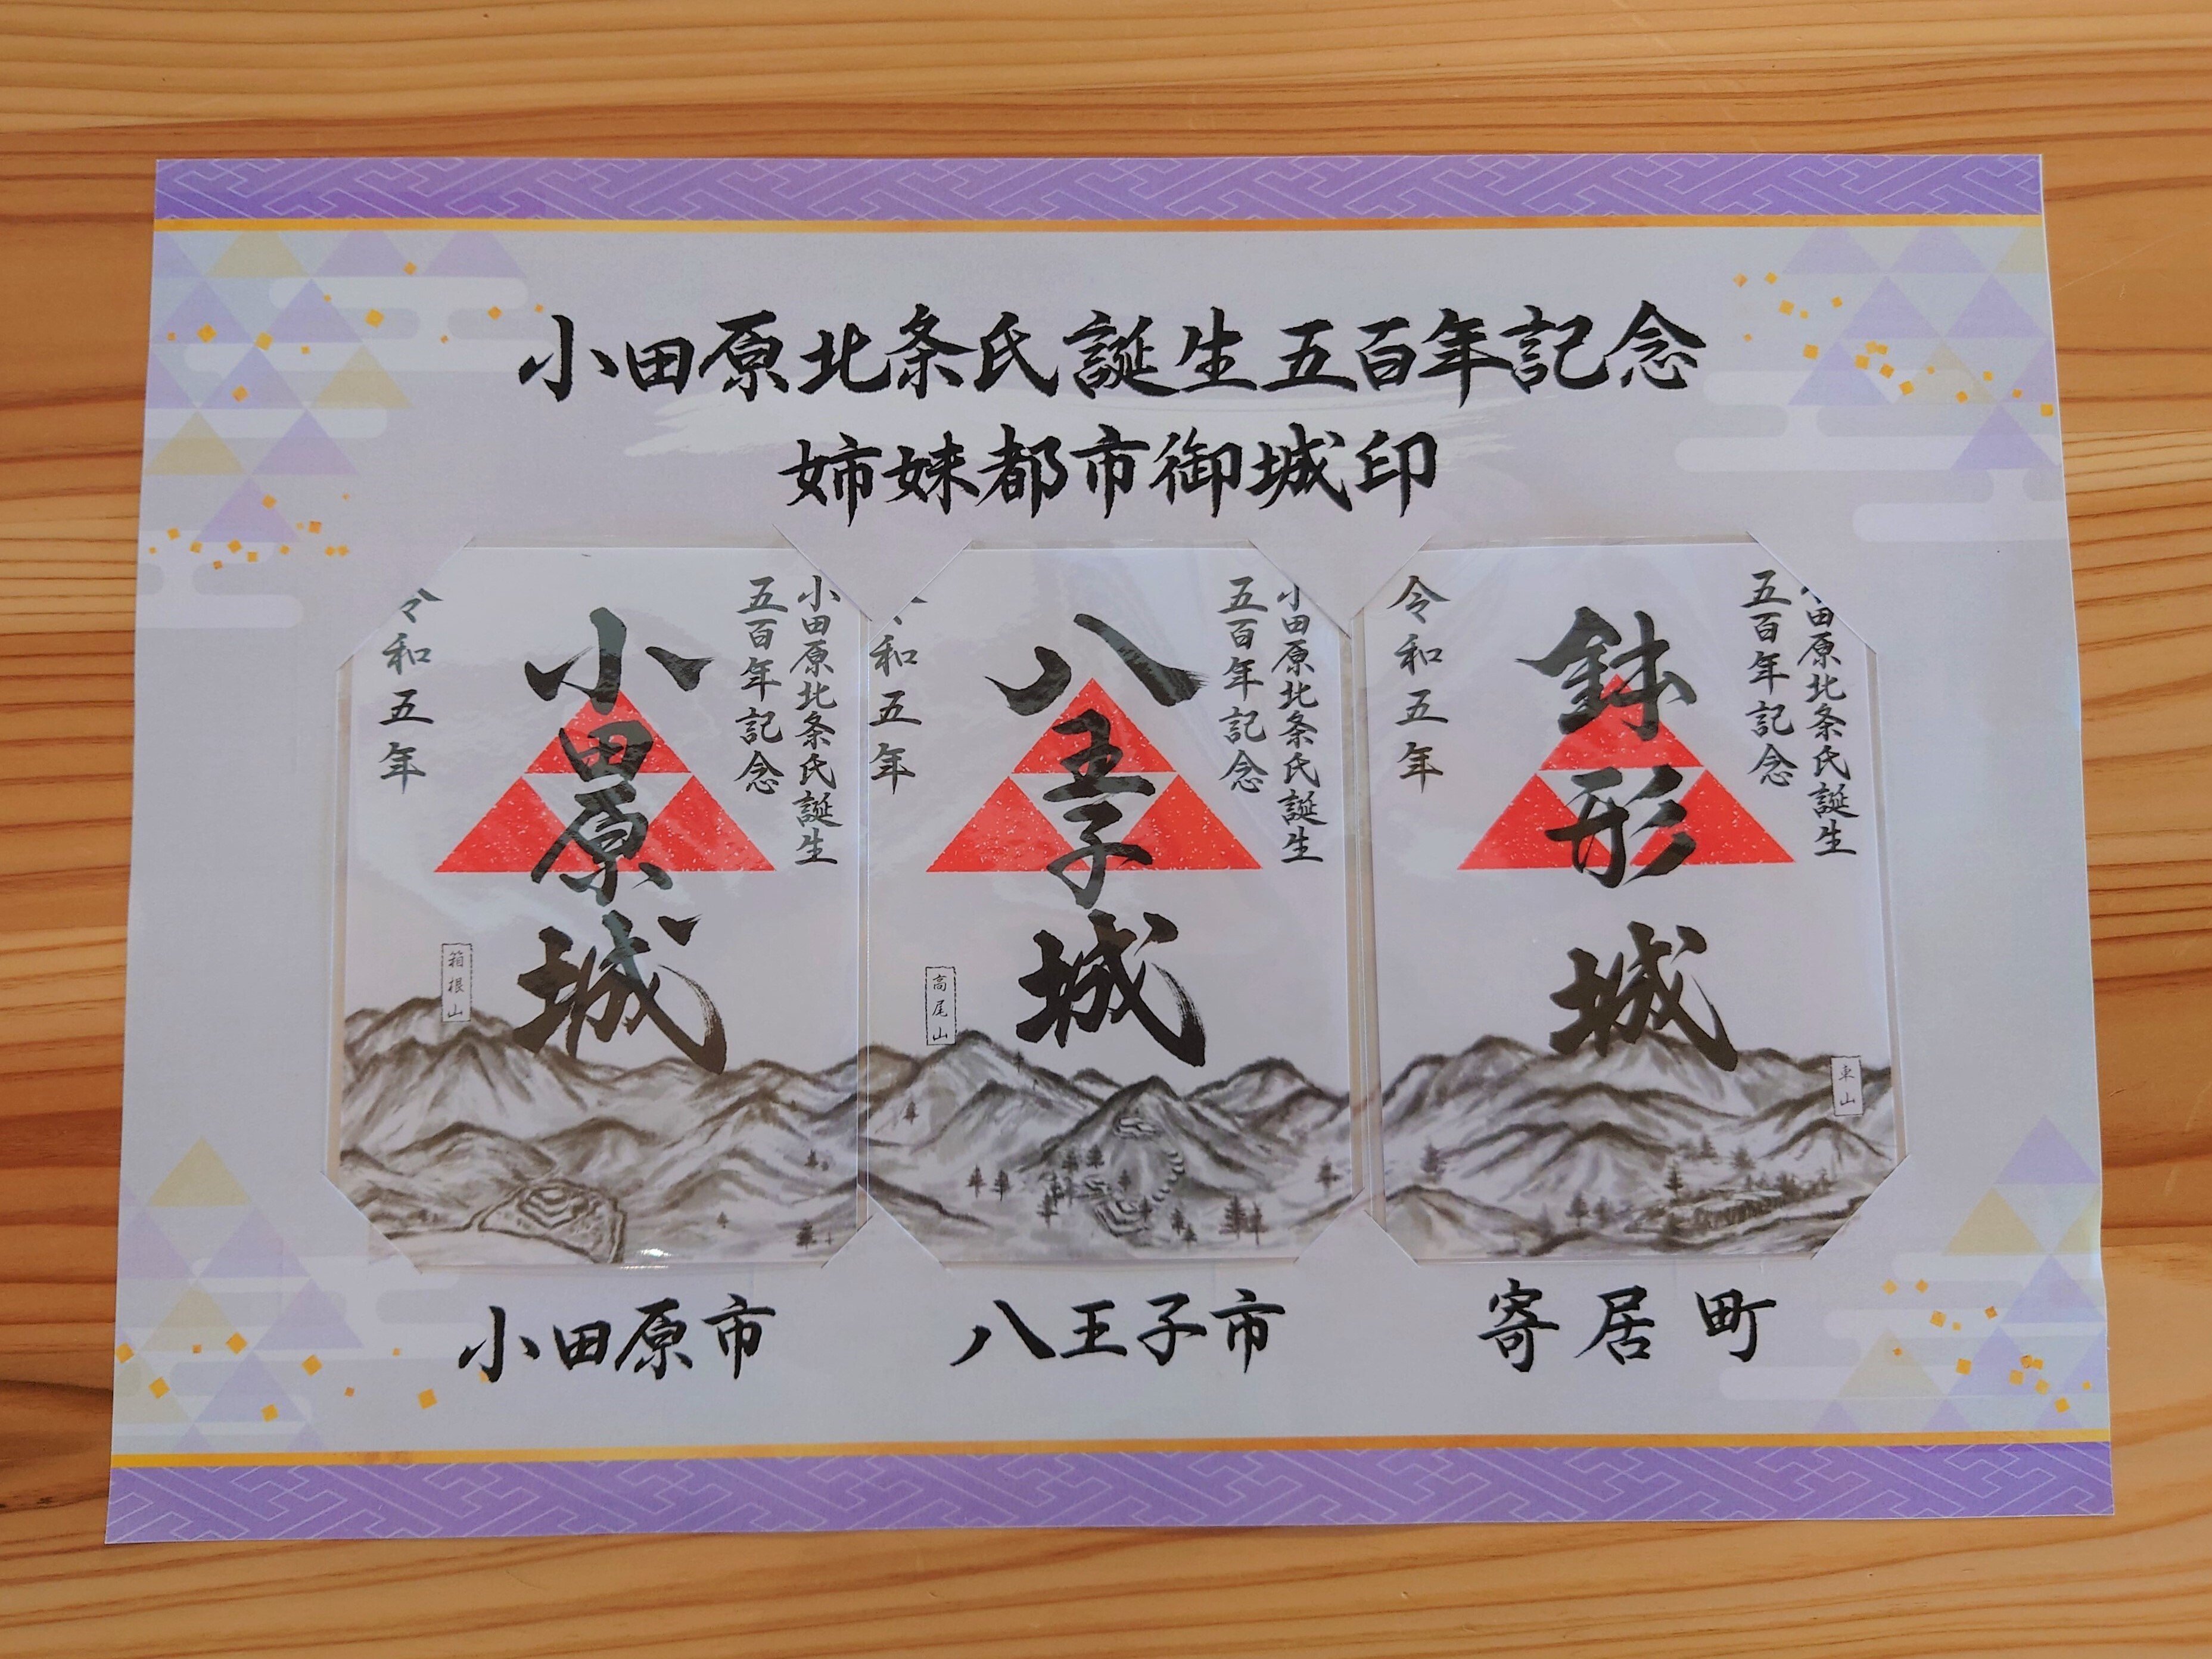 小田原北条氏誕生五百年記念
姉妹都市御城印
小田原北条氏誕生
五百年記念
小田原城
令和五年
箱根山
小田原北条氏誕生
五百年記念
八王子城
令和五年
高尾山
小田原北条氏誕生
五百年記念
鉢形城
令和五年
車山
小田原市
八王子市
寄居町